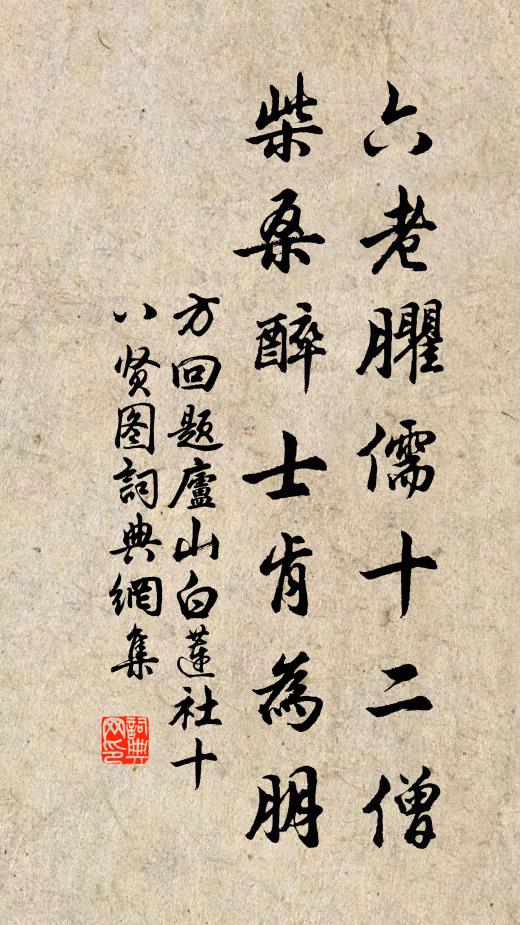 六老臞儒十二僧
柴桑醉士肯為朋
方回题廬山白蓮社十
八贤图詞典網集
詞典
网印